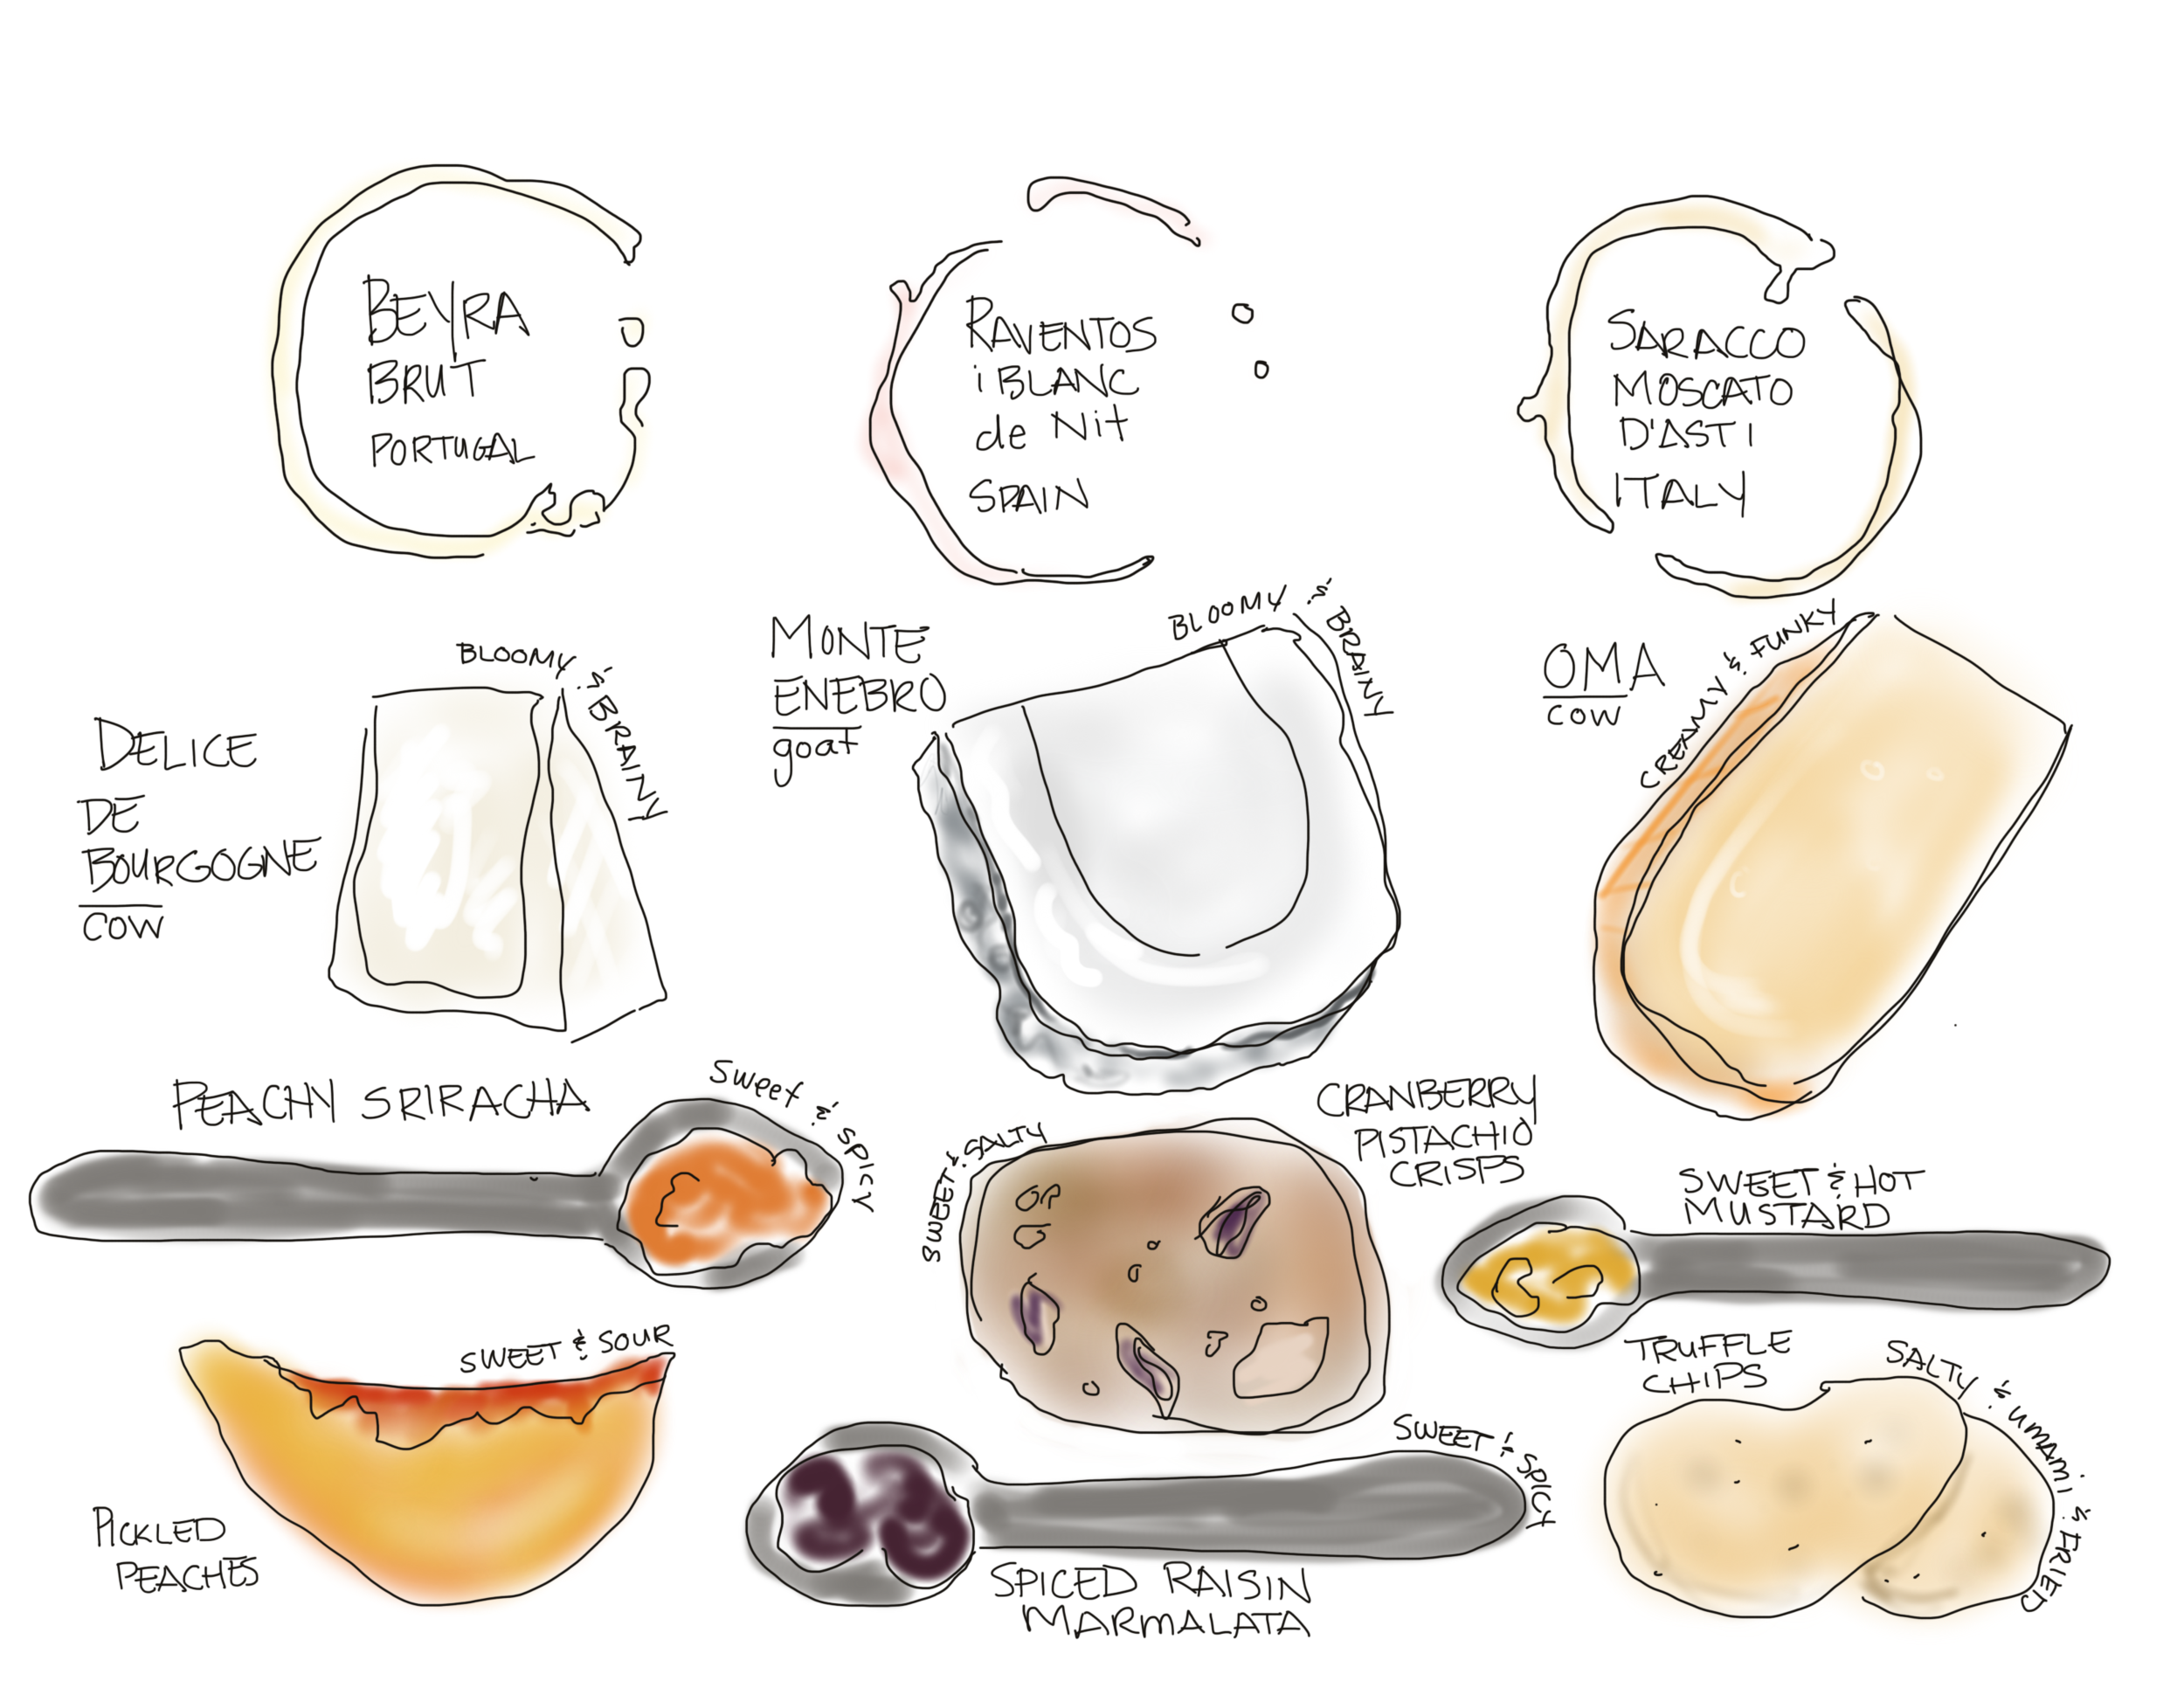 BEYRA
BRUT
PORTUGAL
RAVENTOS
i BLANC
de Nit
SPAIN
SARACCO
MOSCATO
D'ASTI
ITALY
DELICE
DE
BOURGOGNE
COW
BLOOMY & BRAINY
MONTE
ENEBRO
goat
BLOOMY & BRAINY
OMA
COW
CREAMY & FUNKY
PEACHY SRIRACHA
Sweet & SPICY
SWEET & SALTY
CRANBERRY
PISTACHIO
CRISPS
SWEET & HOT
MUSTARD
SWEET & SOUR
PICKLED
PEACHES
SWEET & SPICY
SPICED RAISIN
MARMALATA
TRUFFLE
CHIPS
SALTY & UMAMI & FRIED